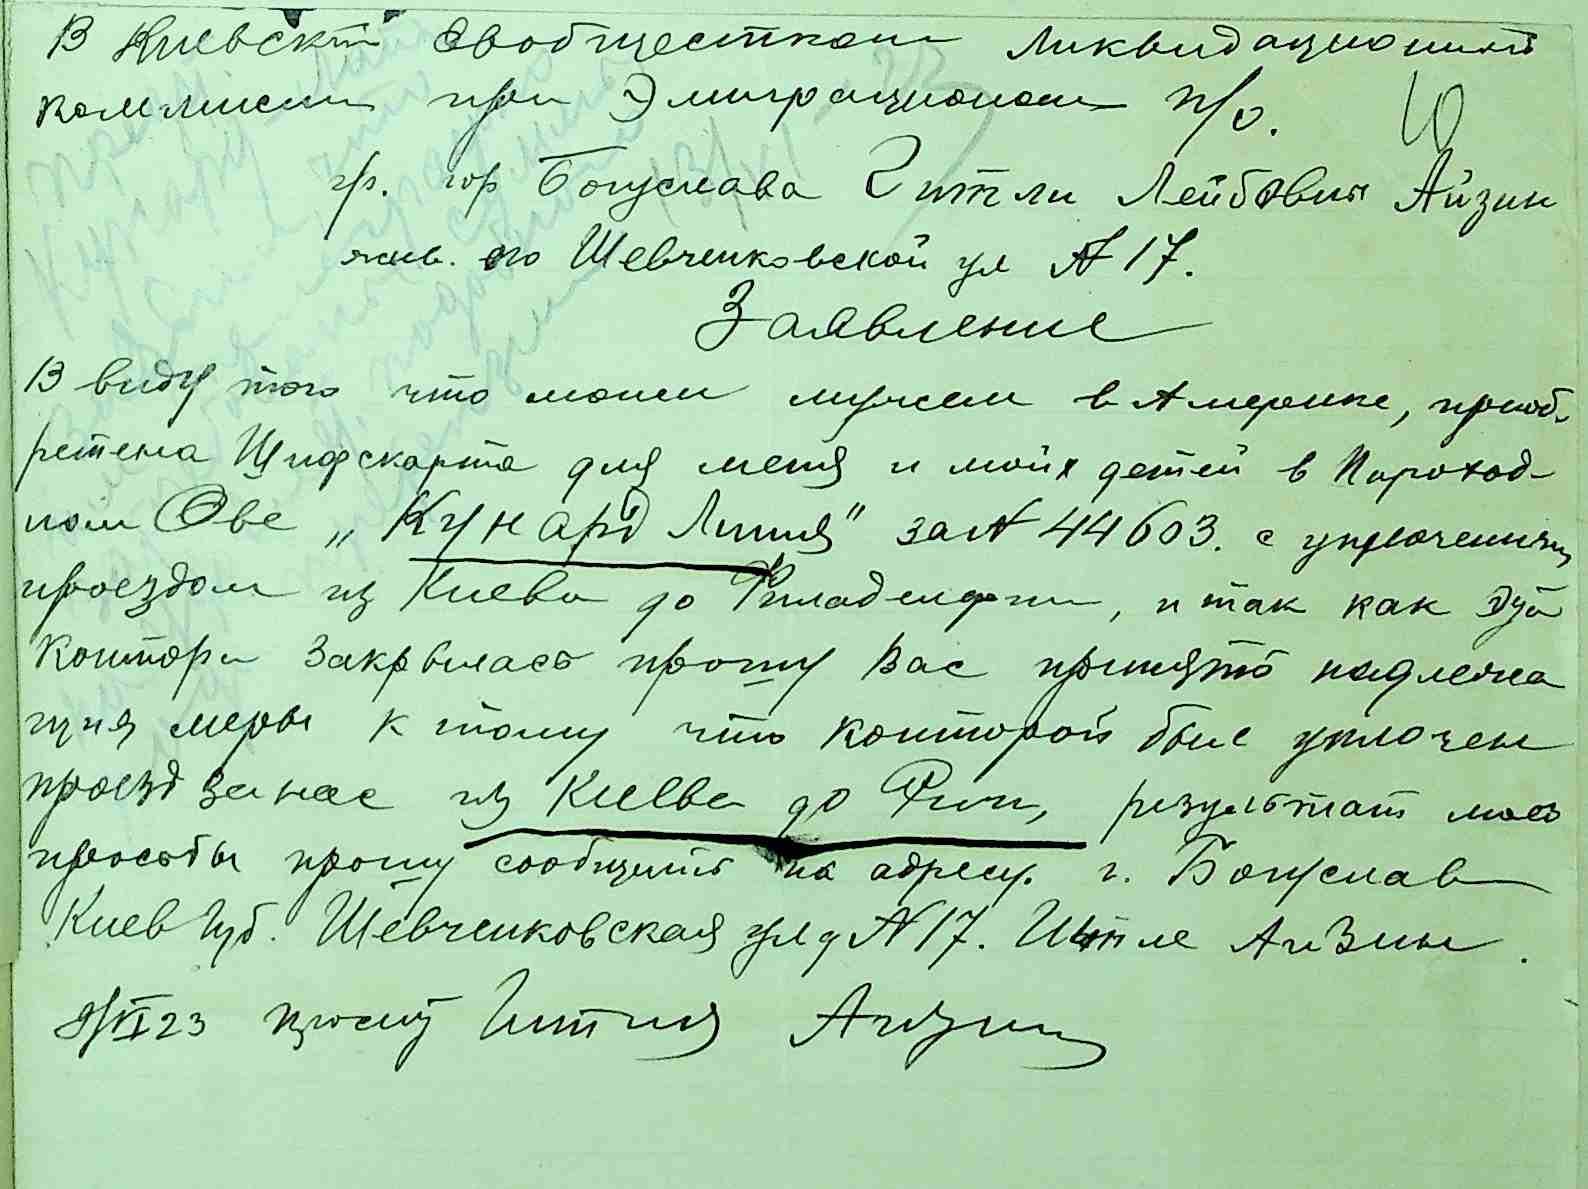 В Киевской Евобщесткom Ликвидационной
коммисии при Эмиграционом п/о.
10
гр. гор Богуслава Гитли Лейбовны Айзин
жив. по Шевченковской ул № 17.
Заявление
В виду того что моим мужем в Америке, приоб-
ретена Шифскарта для меня и моих детей в Пароход-
ном О-ве „Кунард Линия" за № 44603. с уплоченным
проездом из Киева до Филадельфии, и так как эта
контора закрылась прошу Вас принять надлежа
щия меры к тому что конторой был уплочен
проезд за нас из Киева до Фил, результат моей
просьбы прошу сообщить на адресу. г. Богуслав
Киев Губ. Шевченковская ул д № 17. Гитле Айзин.
/VI 23 Гитля Айзин